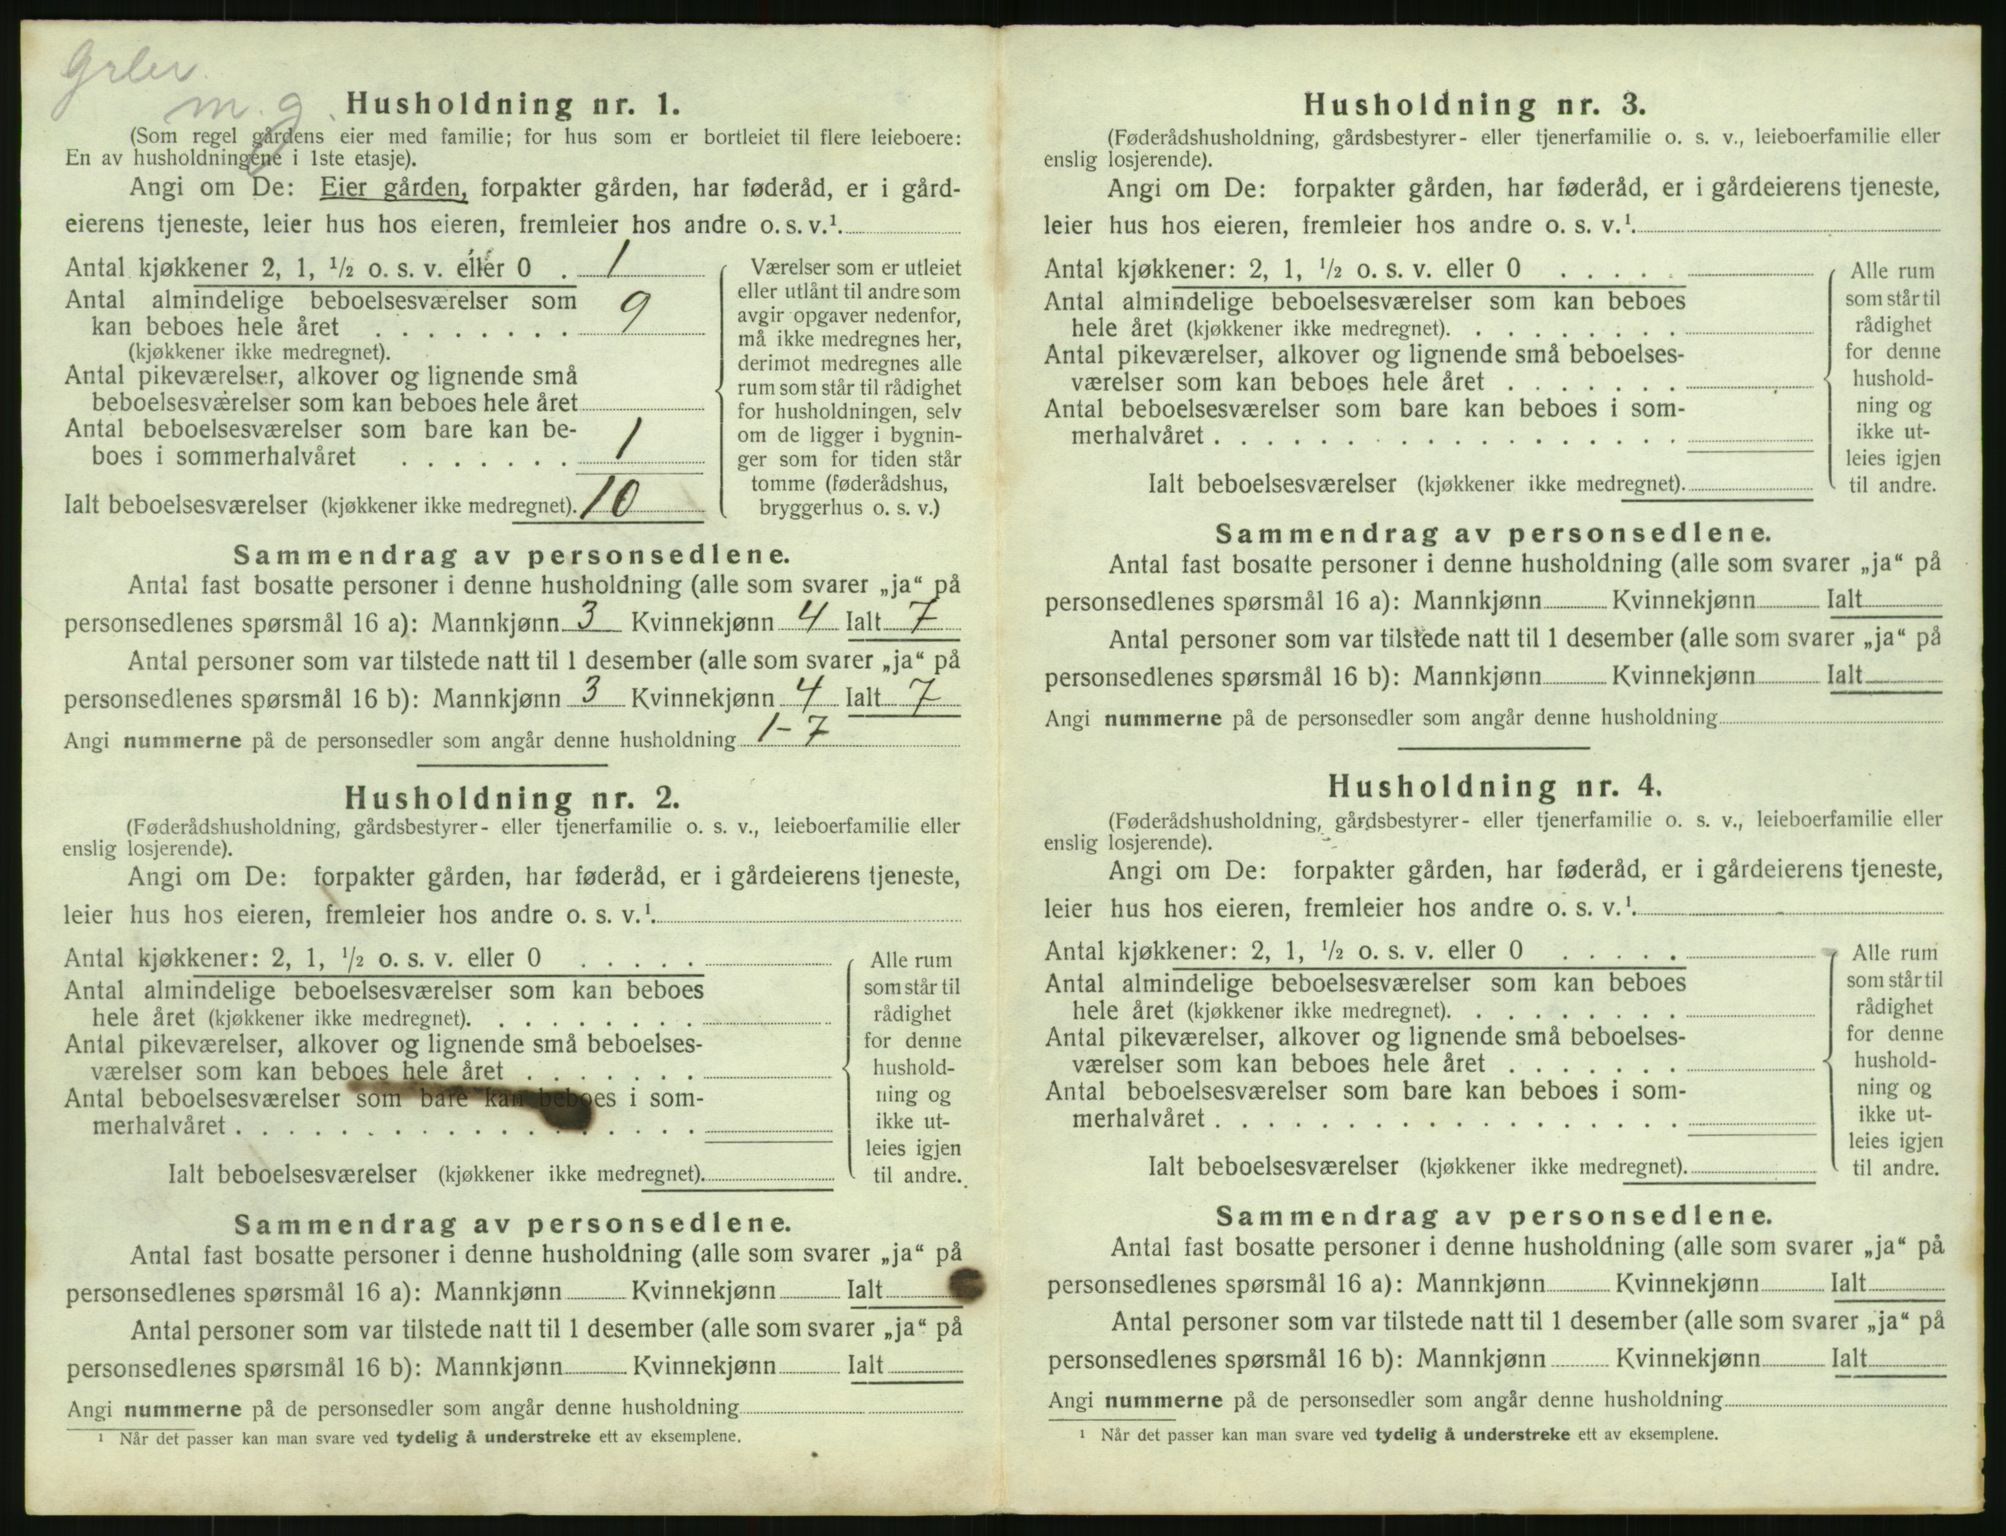 m. g.
Husholdning nr. 1.
(Som regel gårdens eier med familie; for hus som er bortleiet til flere leieboere:
En av husholdningene i 1ste etasje).
Angi om De: Eier gården, forpakter gården, har føderåd, er i gård-
eierens tjeneste, leier hus hos eieren, fremleier hos andre o. s. v.¹.
Antal kjøkkener 2, 1, ½ o. s. v. eller 0 . 1
Antal almindelige beboelsesværelser som
kan beboes hele året . . . . . . . 9
(kjøkkener ikke medregnet).
Antal pikeværelser, alkover og lignende små
beboelsesværelser som kan beboes hele året
Antal beboelsesværelser som bare kan be-
boes i sommerhalvåret . . . . . . . 1
Ialt beboelsesværelser (kjøkkener ikke medregnet). 10
Værelser som er utleiet
eller utlånt til andre som
avgir opgaver nedenfor,
må ikke medregnes her,
derimot medregnes alle
rum som står til rådighet
for husholdningen, selv
om de ligger i bygnin-
ger som for tiden står
tomme (føderådshus,
bryggerhus o. s. v.)
Sammendrag av personsedlene.
Antal fast bosatte personer i denne husholdning (alle som svarer „ja“ på
personsedlenes spørsmål 16 a): Mannkjønn 3 Kvinnekjønn 4 Ialt 7
Antal personer som var tilstede natt til 1 desember (alle som svarer „ja“ på
personsedlenes spørsmål 16 b): Mannkjønn 3 Kvinnekjønn 4 Ialt 7
Angi nummerne på de personsedler som angår denne husholdning 1-7
Husholdning nr. 2.
(Føderådshusholdning, gårdsbestyrer- eller tjenerfamilie o. s. v., leieboerfamilie eller
enslig losjerende).
Angi om De: forpakter gården, har føderåd, er i gårdeierens tjeneste,
leier hus hos eieren, fremleier hos andre o. s. v.¹.
Antal kjøkkener: 2, 1, ½ o. s. v. eller 0 . . . . .
Antal almindelige beboelsesværelser som kan beboes
hele året (kjøkkener ikke medregnet). . . . . . . . .
Antal pikeværelser, alkover og lignende små beboelses-
værelser som kan beboes hele året . . . . . . .
Antal beboelsesværelser som bare kan beboes i som-
merhalvåret . . . . . . . . . . . . . . . . .
Ialt beboelsesværelser (kjøkkener ikke medregnet).
Alle rum
som står til
rådighet
for denne
hushold-
ning og
ikke ut-
leies igjen
til andre.
Sammendrag av personsedlene.
Antal fast bosatte personer i denne husholdning (alle som svarer „ja“ på
personsedlenes spørsmål 16 a): Mannkjønn Kvinnekjønn Ialt
Antal personer som var tilstede natt til 1 desember (alle som svarer „ja“ på
personsedlenes spørsmål 16 b): Mannkjønn Kvinnekjønn Ialt
Angi nummerne på de personsedler som angår denne husholdning
¹ Når det passer kan man svare ved tydelig å understreke ett av eksemplene.
Husholdning nr. 3.
(Føderådshusholdning, gårdsbestyrer- eller tjenerfamilie o. s. v., leieboerfamilie eller
enslig losjerende).
Angi om De: forpakter gården, har føderåd, er i gårdeierens tjeneste,
leier hus hos eieren, fremleier hos andre o. s. v.¹.
Antal kjøkkener: 2, 1, ½ o. s. v. eller 0 . . . . .
Antal almindelige beboelsesværelser som kan beboes
hele året (kjøkkener ikke medregnet). . . . . . . . .
Antal pikeværelser, alkover og lignende små beboelses-
værelser som kan beboes hele året . . . . . . .
Antal beboelsesværelser som bare kan beboes i som-
merhalvåret . . . . . . . . . . . . . . . . .
Ialt beboelsesværelser (kjøkkener ikke medregnet).
Alle rum
som står til
rådighet
for denne
hushold-
ning og
ikke ut-
leies igjen
til andre.
Sammendrag av personsedlene.
Antal fast bosatte personer i denne husholdning (alle som svarer „ja“ på
personsedlenes spørsmål 16 a): Mannkjønn Kvinnekjønn Ialt
Antal personer som var tilstede natt til 1 desember (alle som svarer „ja“ på
personsedlenes spørsmål 16 b): Mannkjønn Kvinnekjønn Ialt
Angi nummerne på de personsedler som angår denne husholdning
Husholdning nr. 4.
(Føderådshusholdning, gårdsbestyrer- eller tjenerfamilie o. s. v., leieboerfamilie eller
enslig losjerende).
Angi om De: forpakter gården, har føderåd, er i gårdeierens tjeneste,
leier hus hos eieren, fremleier hos andre o. s. v.¹.
Antal kjøkkener: 2, 1, ½ o. s. v. eller 0 . . . . .
Antal almindelige beboelsesværelser som kan beboes
hele året (kjøkkener ikke medregnet). . . . . . . . .
Antal pikeværelser, alkover og lignende små beboelses-
værelser som kan beboes hele året . . . . . . .
Antal beboelsesværelser som bare kan beboes i som-
merhalvåret . . . . . . . . . . . . . . . . .
Ialt beboelsesværelser (kjøkkener ikke medregnet).
Alle rum
som står til
rådighet
for denne
hushold-
ning og
ikke ut-
leies igjen
til andre.
Sammendrag av personsedlene.
Antal fast bosatte personer i denne husholdning (alle som svarer „ja“ på
personsedlenes spørsmål 16 a): Mannkjønn Kvinnekjønn Ialt
Antal personer som var tilstede natt til 1 desember (alle som svarer „ja“ på
personsedlenes spørsmål 16 b): Mannkjønn Kvinnekjønn Ialt
Angi nummerne på de personsedler som angår denne husholdning
¹ Når det passer kan man svare ved tydelig å understreke ett av eksemplene.